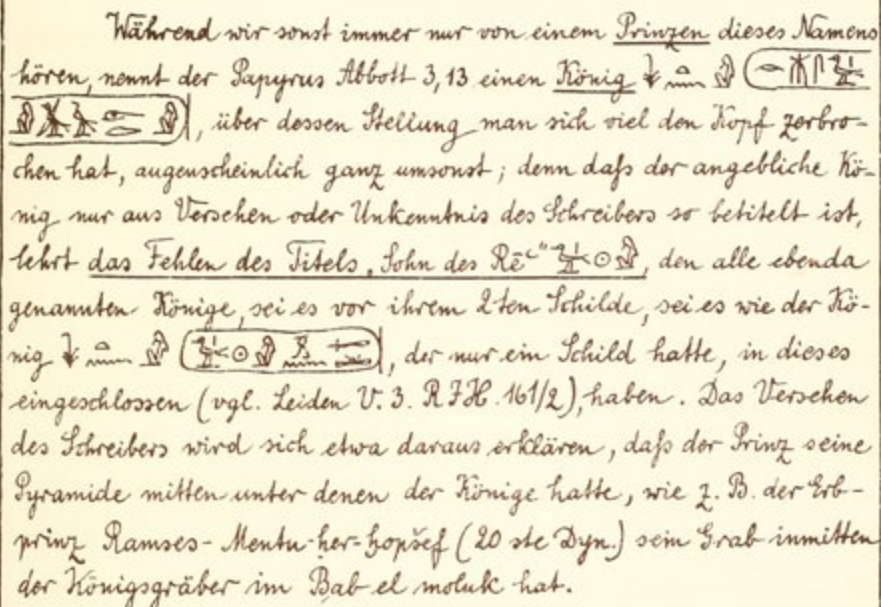 Während wir sonst immer nur von einem Prinzen dieses Namens
hören, nennt der Papyrus Abbott 3,13 einen König
, über dessen Stellung man sich viel den Kopf zerbro-
chen hat, augenscheinlich ganz umsonst; denn daſs der angebliche Kö-
nig nur aus Versehen oder Unkenntnis des Schreibers so betitelt ist,
lehrt das Fehlen des Titels „Sohn des Rēʿ“ , den alle ebenda
genannten Könige, sei es vor ihrem 2ten Schilde, sei es wie der Kö-
nig , der nur ein Schild hatte, in dieses
eingeschlossen (vgl. Leiden V. 3. R.J.H. 161/2), haben. Das Versehen
des Schreibers wird sich etwa daraus erklären, daſs der Prinz seine
Pyramide mitten unter denen der Könige hatte, wie z. B. der Erb-
prinz Ramses-Mentu-ḥer-ḫopšef (20ste Dyn.) sein Grab inmitten
der Königsgräber im Bab el moluk hat.